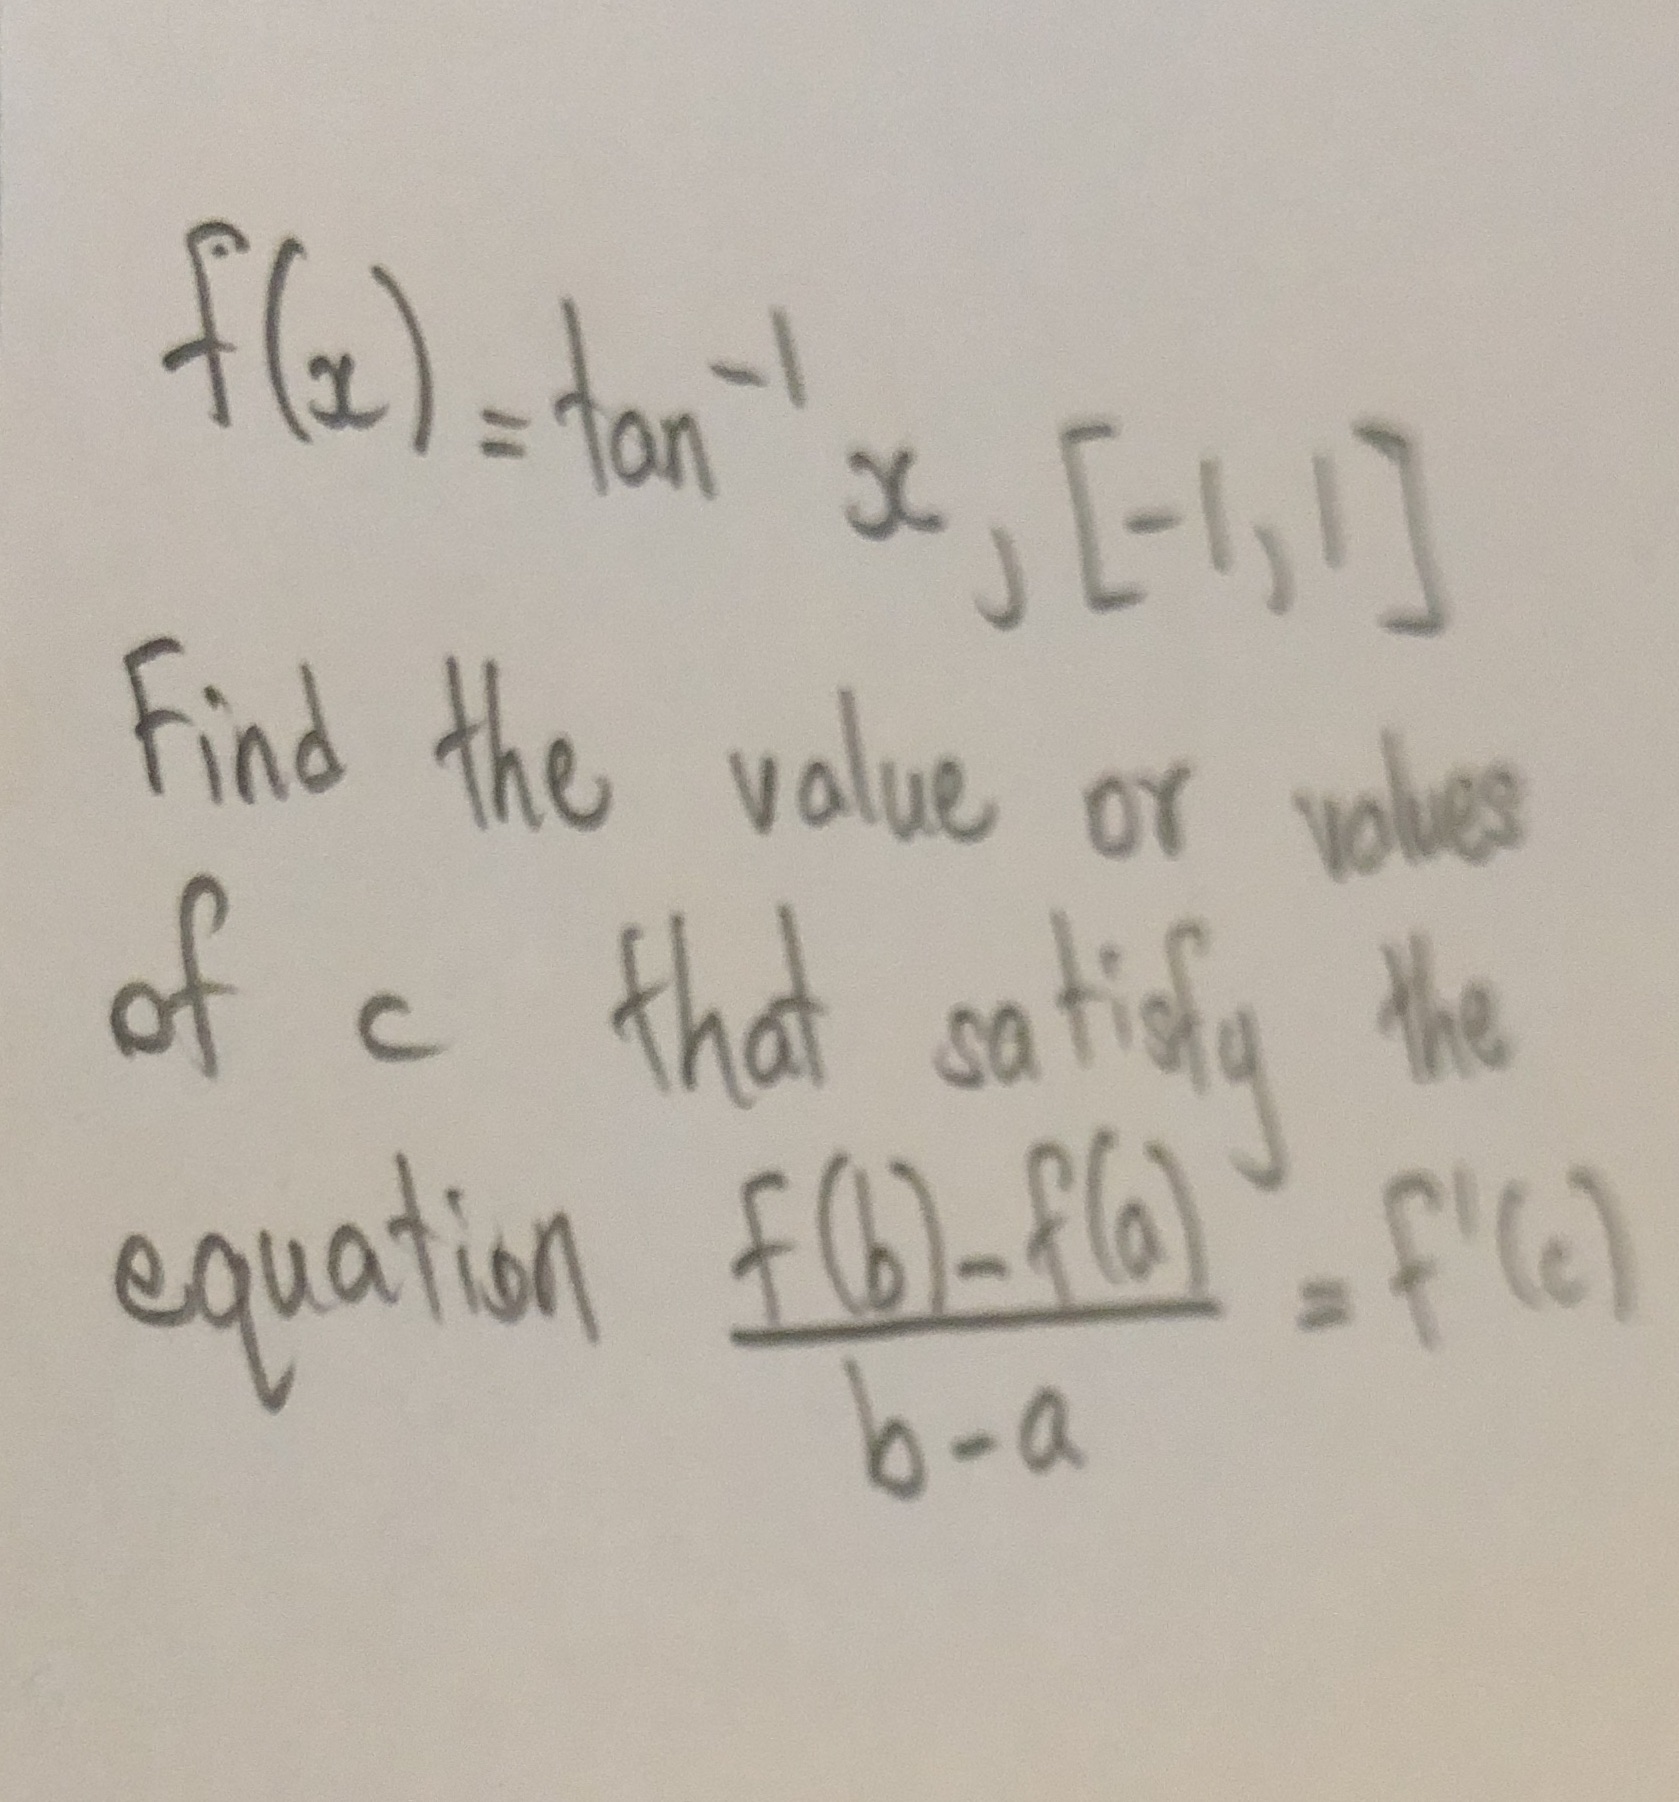 f(x) = tan⁻¹ x, [-1, 1]
Find the value or values
of c that satisfy the
equation \frac{f(b)-f(a)}{b-a} = f'(c)